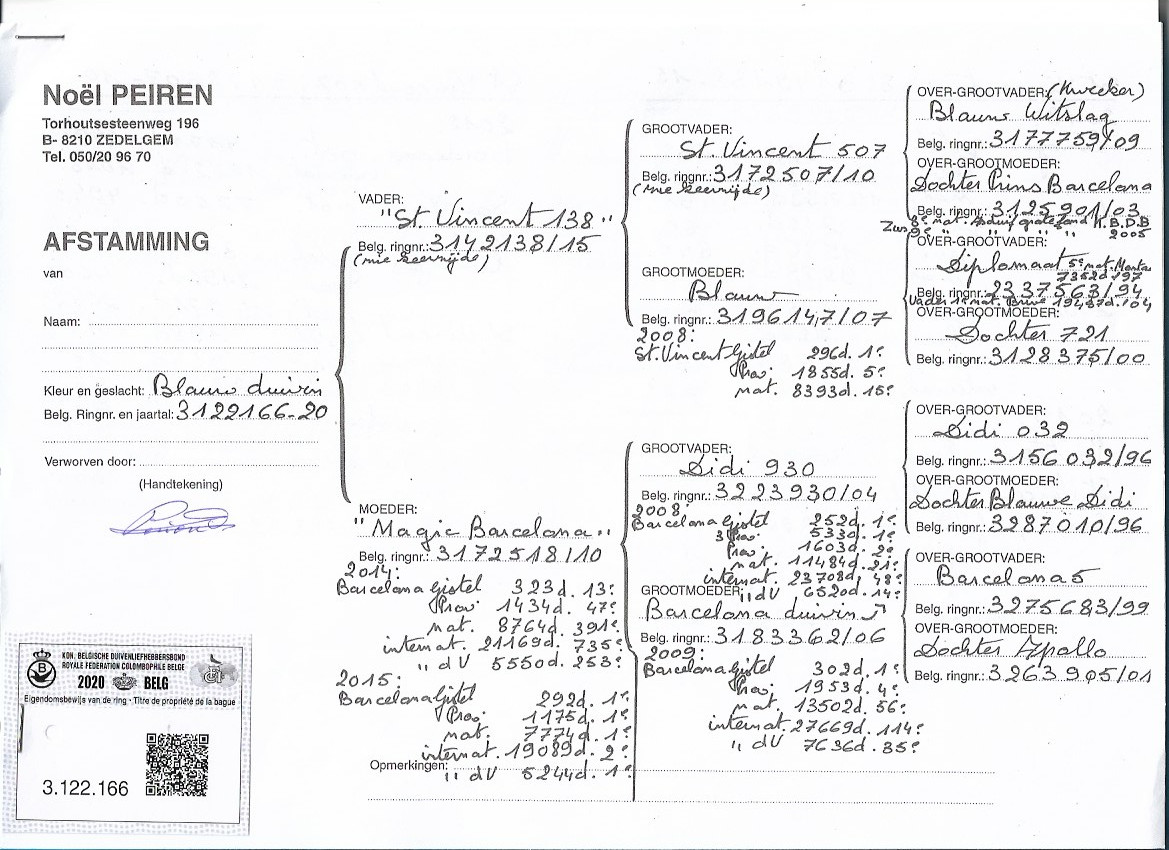 Noël PEIREN
Torhoutsesteenweg 196
B- 8210 ZEDELGEM
Tel. 050/20 96 70
AFSTAMMING
van
Naam:
Kleur en geslacht: Blauw duivin
Belg. Ringnr. en jaartal: 3122166-20
Verworven door:
(Handtekening)
KON. BELGISCHE DUIVENLIEFHEBBERSBOND
ROYALE FEDERATION COLOMBOPHILE BELGE
2020 BELG
Eigendomsbewijs van de ring - Titre de propriété de la bague
3.122.166
VADER:
"St. Vincent 138"
Belg. ringnr.: 3142138/15
MOEDER:
"Magic Barcelona"
Belg. ringnr.: 3172518/10
2014:
Barcelona Gistel 323d. 13e
Prov. 1434d. 47e
nat. 8764d. 391e
internat. 21169d. 735e
" dV 5550d. 253e
2015:
Barcelona Gistel 292d. 1e
Prov. 1175d. 1e
nat. 7774d. 1e
internat. 19089d. 2e
Opmerkingen: " dV 5244d. 1e
GROOTVADER:
St. Vincent 507
Belg. ringnr.: 3172507/10
GROOTMOEDER:
Blauw
Belg. ringnr.: 3196147/07
2008:
St. Vincent Gistel 296d. 1e
Prov. 1855d. 5e
nat. 8393d. 15e
GROOTVADER:
Didi 930
Belg. ringnr.: 3223930/04
2008:
Barcelona Gistel 252d. 1e
3 Prov. 533d. 1e
Prov. 1603d. 2e
nat. 11484d. 21e
internat. 23708d. 48e
" dV 6520d. 14e
GROOTMOEDER:
Barcelona duivin
Belg. ringnr.: 3183362/06
2009:
Barcelona Gistel 302d. 1e
Prov. 1953d. 4e
nat. 13502d. 56e
internat. 27669d. 114e
" dV 7636d. 35e
OVER-GROOTVADER: (Kweeker)
Blauw Witslag
Belg. ringnr.: 3177759/09
OVER-GROOTMOEDER:
Dochter Prins Barcelona
Belg. ringnr.: 3125901/03
K.B.D.B
2005
OVER-GROOTVADER:
Diplomaat 5e nat. Montau
7352d '97
Belg. ringnr.: 2337563/94
Vader 1e nat. Brive 19487d. '04
OVER-GROOTMOEDER:
Dochter 721
Belg. ringnr.: 3128375/00
OVER-GROOTVADER:
Didi 032
Belg. ringnr.: 3156032/96
OVER-GROOTMOEDER:
Dochter Blauwe Didi
Belg. ringnr.: 3287010/96
OVER-GROOTVADER:
Barcelona 5
Belg. ringnr.: 3275683/99
OVER-GROOTMOEDER:
Dochter Apollo
Belg. ringnr.: 3263905/01